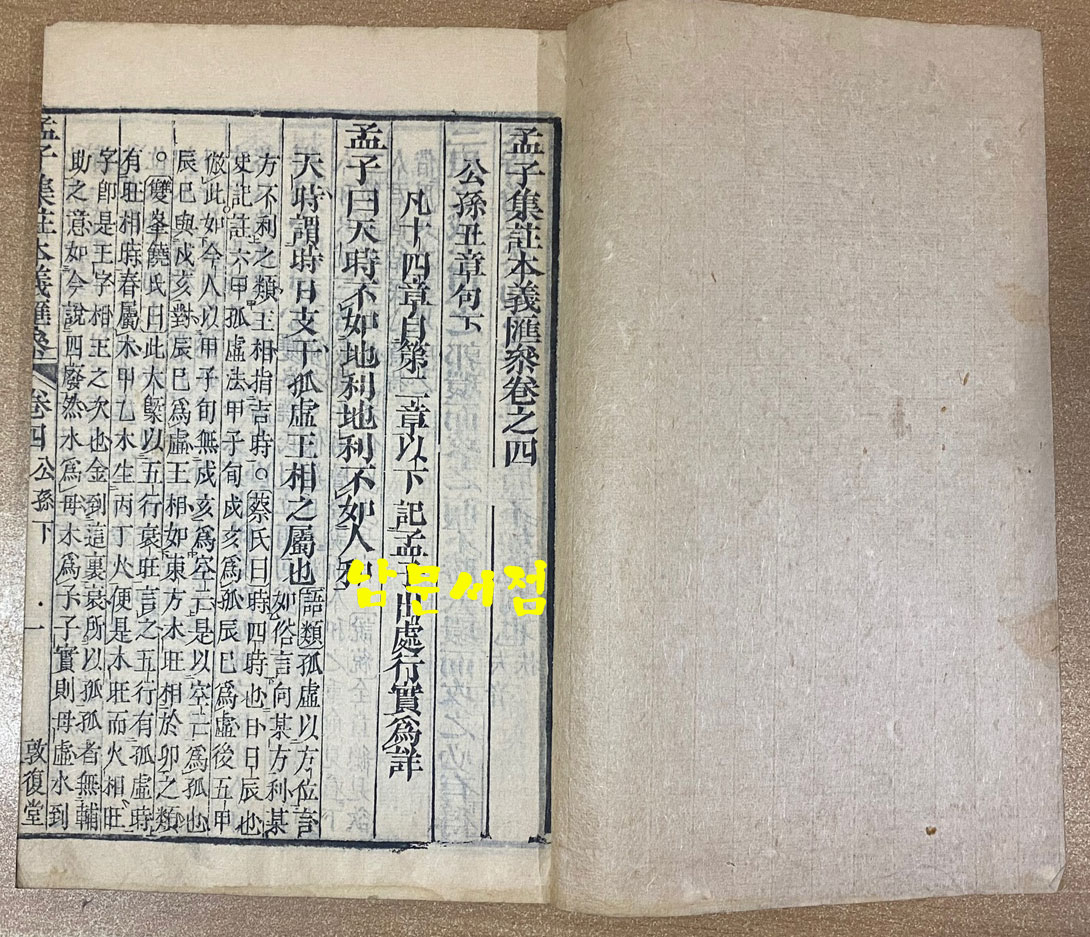 孟子集註本義匯叅卷之四
公孫丑章句下
凡十四章自第二章以下記孟子出處行實爲詳
孟子曰天時不如地利地利不如人和
天時謂時日支干孤虛王相之屬也
語類孤虛以方位言
如俗言向某方利某
方不利之類王相指吉時○蔡氏曰時四時也日日辰也
史記註六甲孤虛法甲子旬戌亥爲孤辰巳爲虛後五甲
倣此如今人以甲子旬無戌亥爲空亡是以空亡爲孤也
辰巳與戌亥對辰巳爲虛王相如東方木旺相於卯之類
○雙峯饒氏曰此大槩以五行衰旺言之五行有孤虛時
有旺相時春屬木甲乙木生丙丁火便是木旺而火相旺
字卽是王字相王之次也金到這裏衰所以孤孤者無輔
助之意如今說四廢然水爲母木爲子子實則母虛水到
孟子集註本義匯叅
卷四 公孫下
一
敦復堂
남문서점